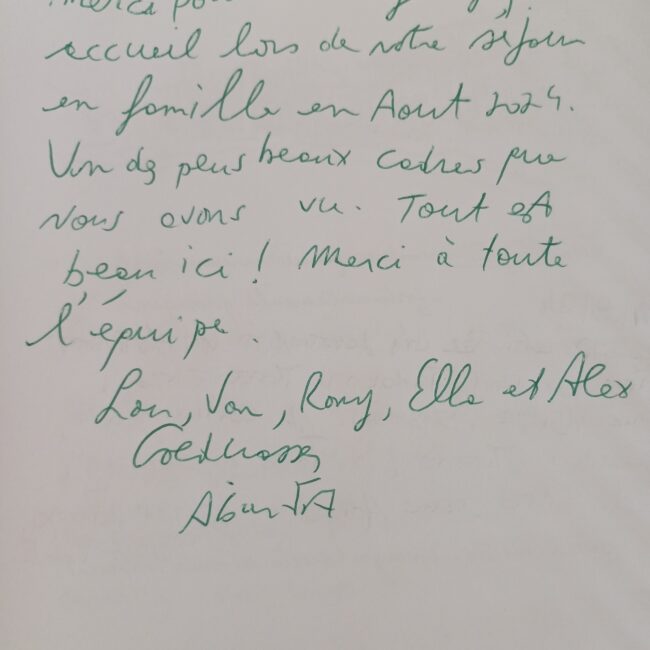 Merci pour
accueil lors de notre séjour
en famille en Aout 2024.
Un des plus beaux cadres que
nous avons vu. Tout est
beau ici ! Merci à toute
l'équipe.
Lou, Von, Romy, Ella et Alex
A bientôt